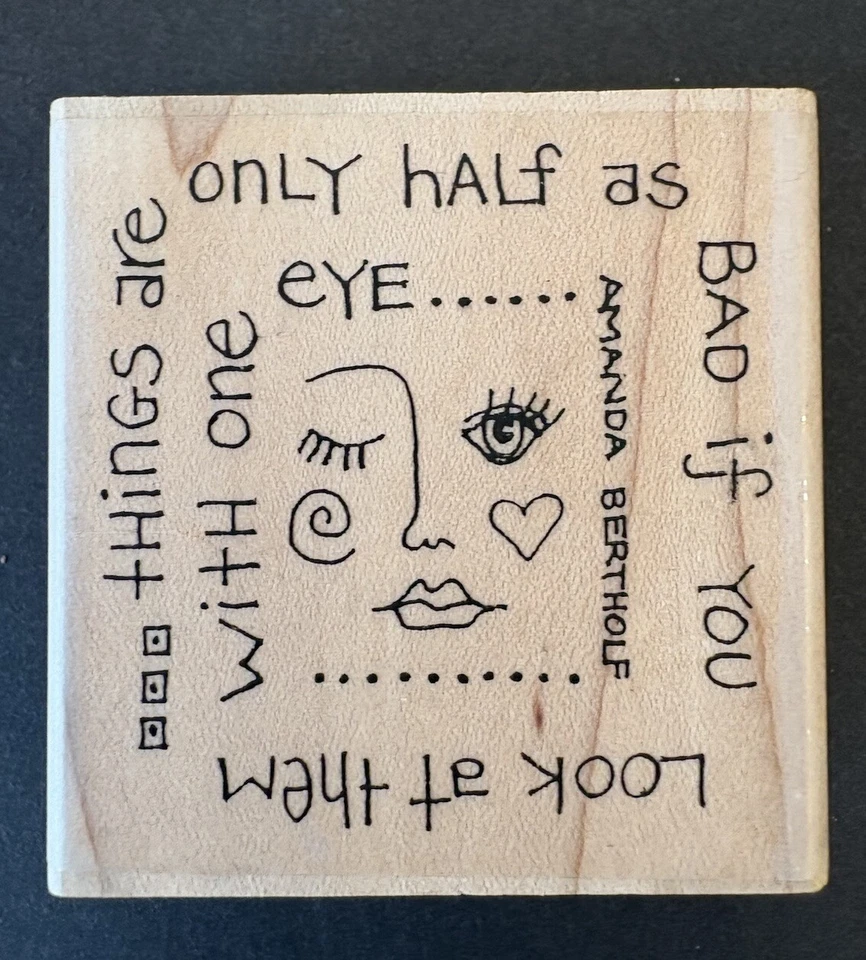 tHiNGS are
onLY hALf as
BAD if YOU
LOOK at theM
with one
eYE......
AMANDA BERTHOLF